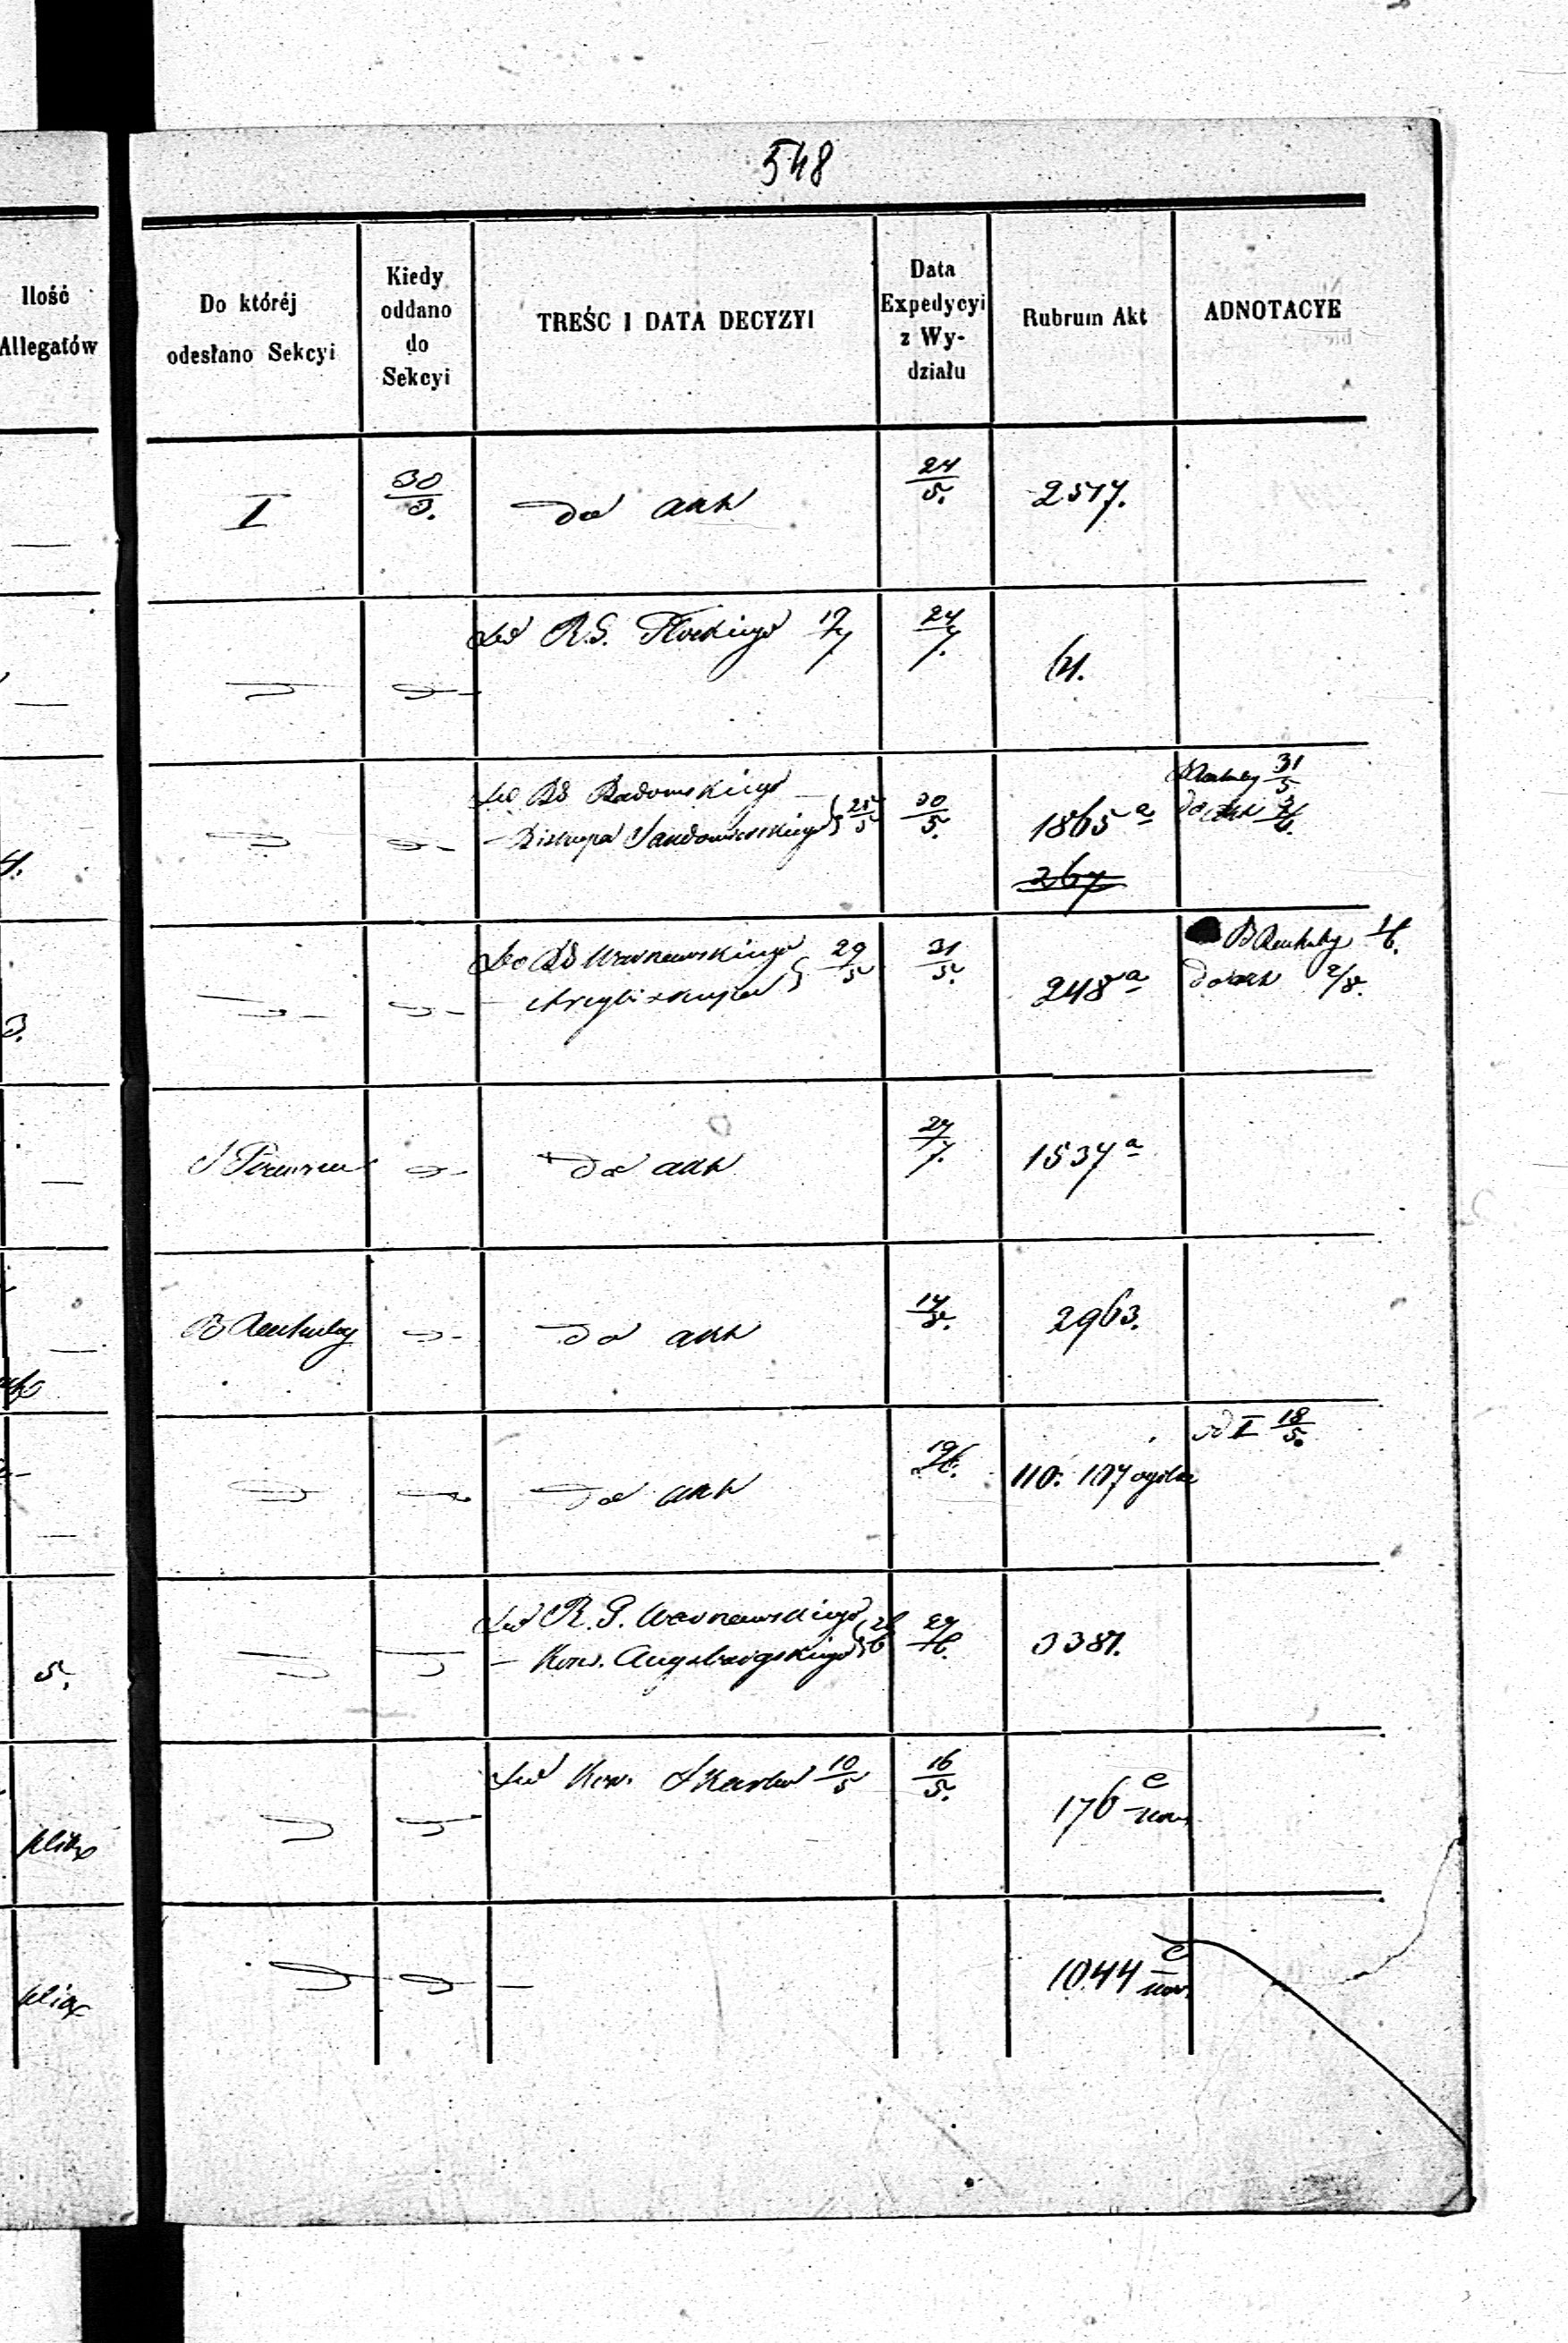 548
Ilość
Allegatów
Do któréj
odesłano Sekcyi
Kiedy
oddano
do
Sekcyi
TREŚC I DATA DECYZYI
Data
Expedycyi
z Wy-
działu
Rubrum Akt
ADNOTACYE
I 30/3. do akt 24/5. 2517.
Do R.G. Płockiego 19/7. 24/7. 61.
Do RG Radomskiego
– Biskupa Sandomierskiego } 25/5 30/5. 1865 a 31/5
do akt
267
3.
Do RG Warszawskiego
– Arcybiskupa } 29/5 31/5. 248 a B Rachuby 1/6.
do akt 2/8.
do akt 27/7. 1537 a
B Rachuby do akt 14/8. 2963.
do akt 19/6. 110. 107 ogólne od I 18/5.
5.
Do R.G. Warszawskiego
– Kons. Augsburgskiego } 26/6 27/6. 3381.
Do Kom. Skarbu 10/5 16/5. 176 e
1044 e